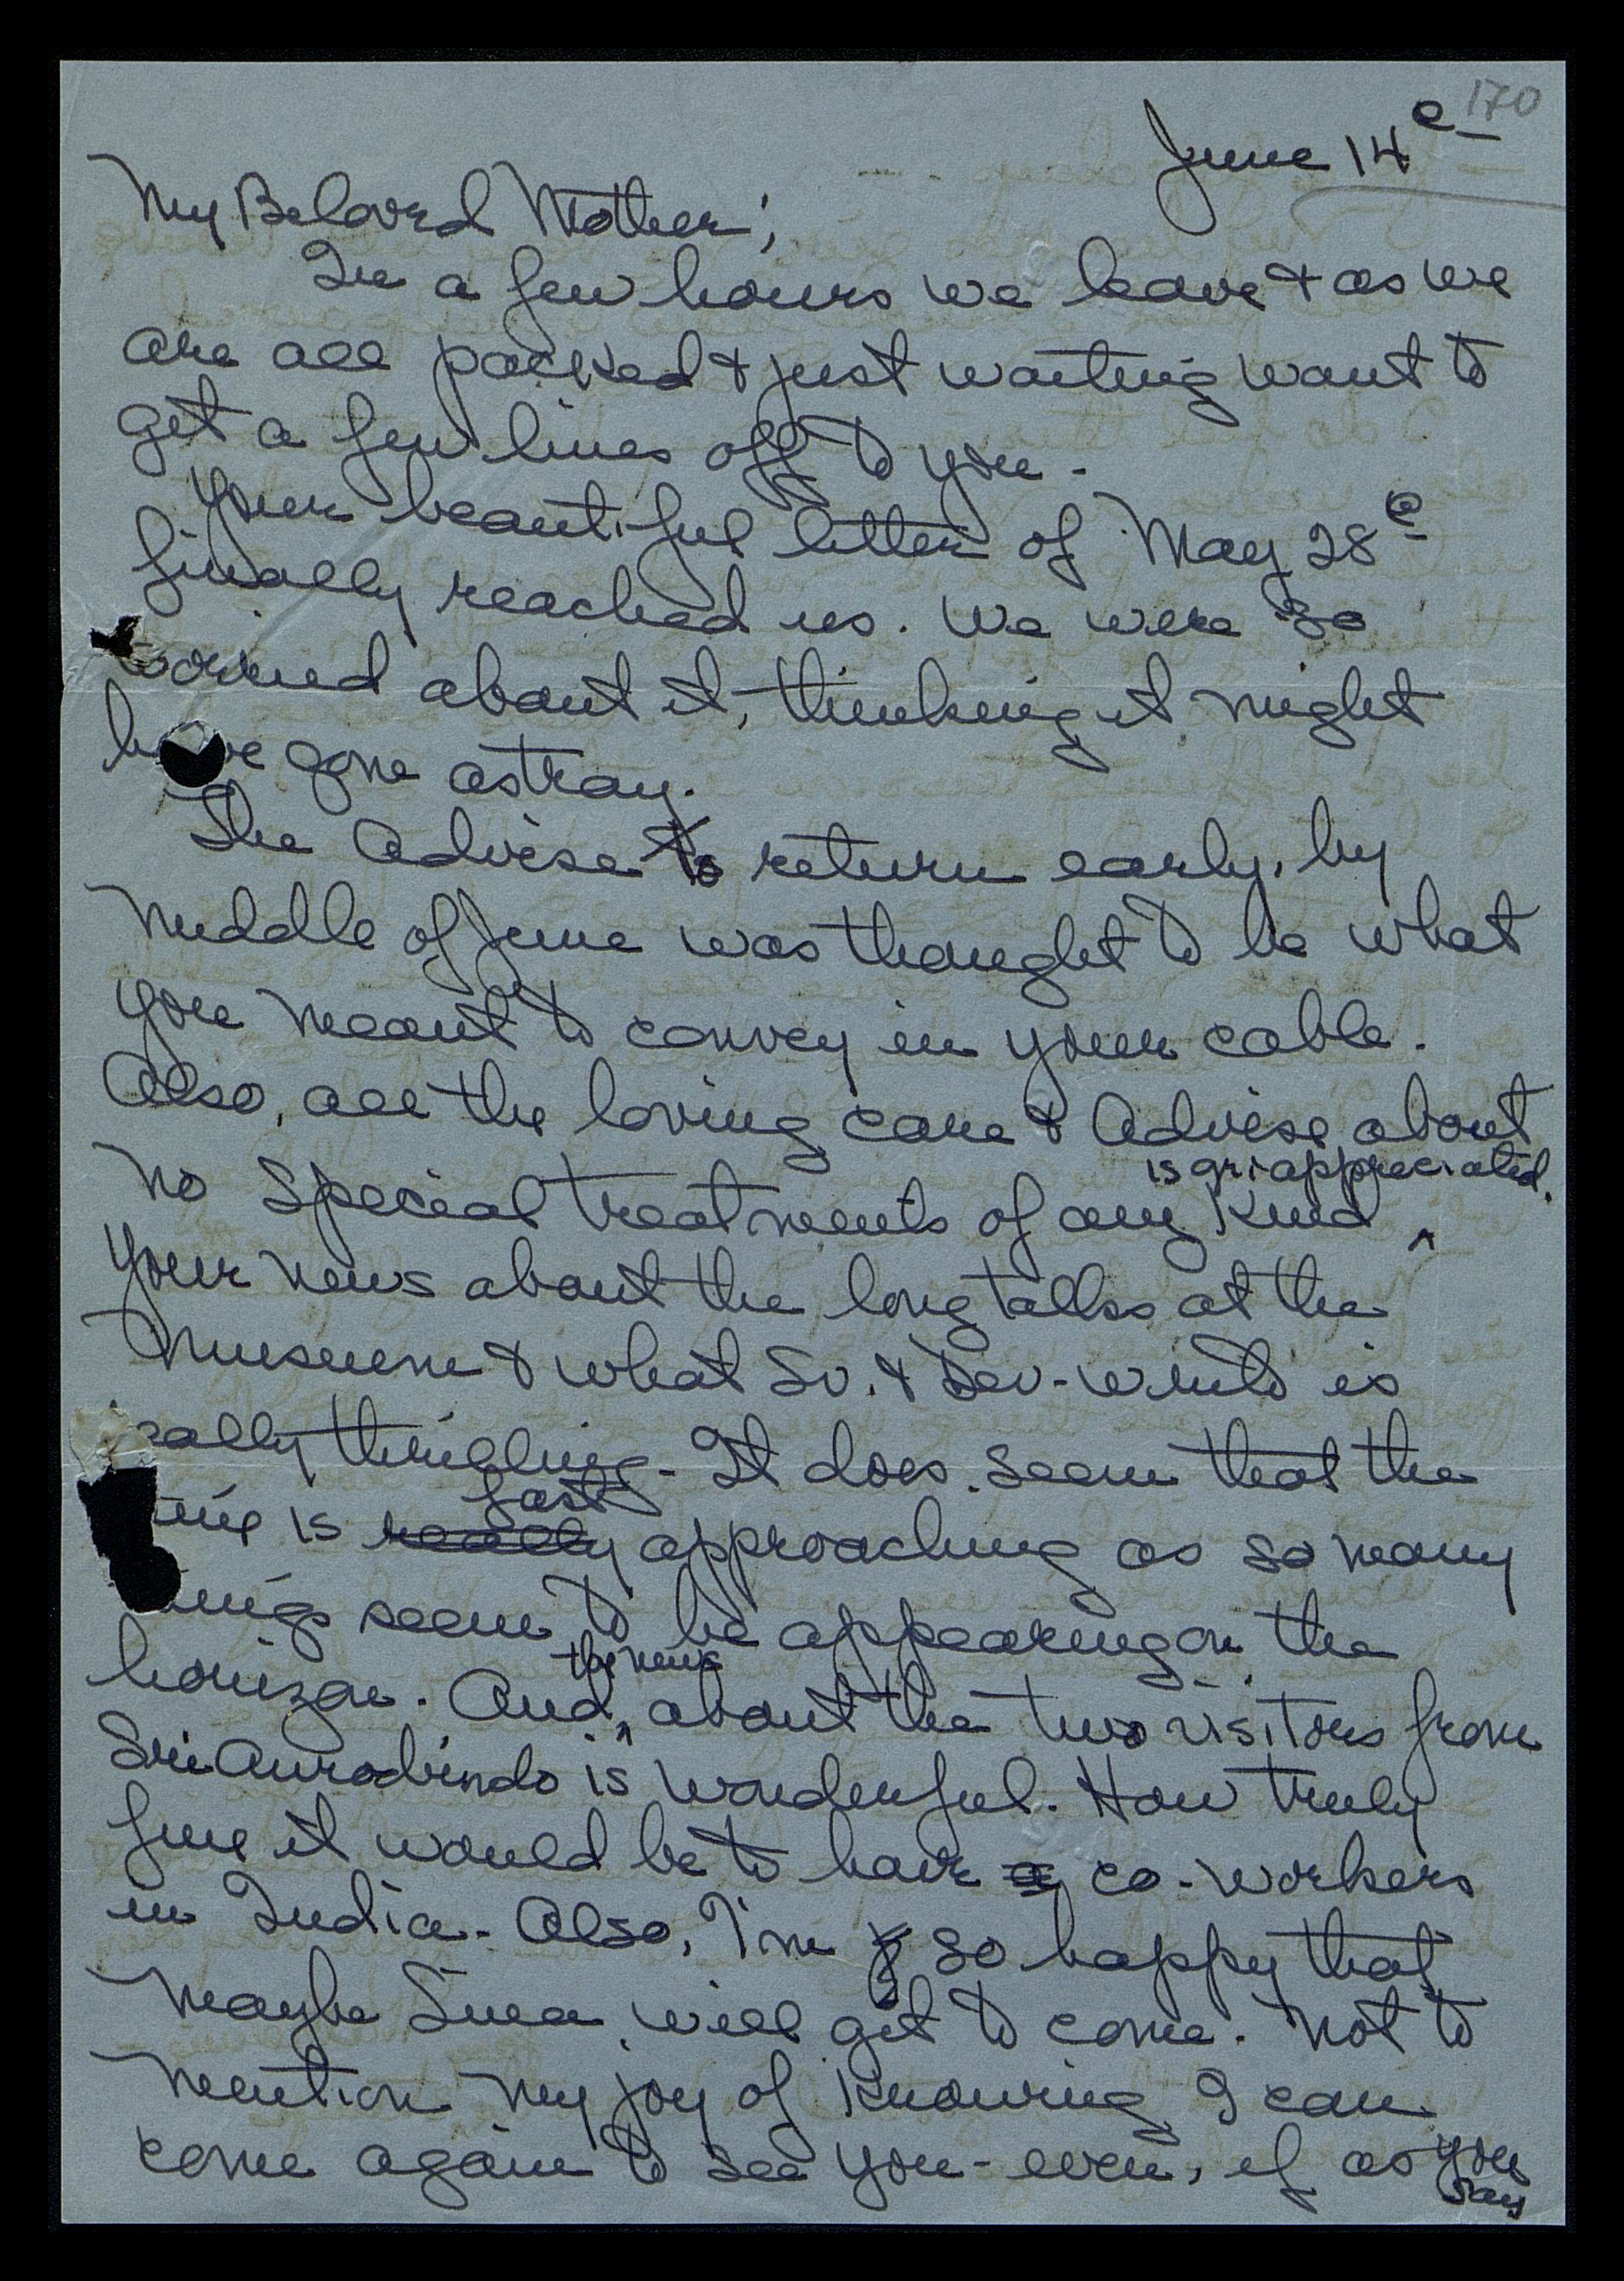 170
June 14e
My Beloved Mother;
In a few hours we leave & as we
are all packed & just waiting want to
get a few lines off to you.
Your beautiful letter of May 28e
finally reached us. We were so
worried about it, thinking it might
have gone astray.
The Advise to return early, by
middle of June was thought to be what
you meant to convey in your cable.
Also, all the loving care & Advise about
is gr. appreciated.
no special treatments of any kind ^
Your news about the long talks at the
Museum & what Sv. & Dev. write is
really thrilling. It does seem that the
fast
time is really approaching as so many
things seem to be appearing on the
the news
horizon. And ^ about the two visitors from
Sri Aurobindo is wonderful. How truly
fine it would be to have co-workers
in India. Also, I'm so happy that
maybe Sina will get to come. Not to
mention my joy of knowing I can
come again to see you - even, if as you
say